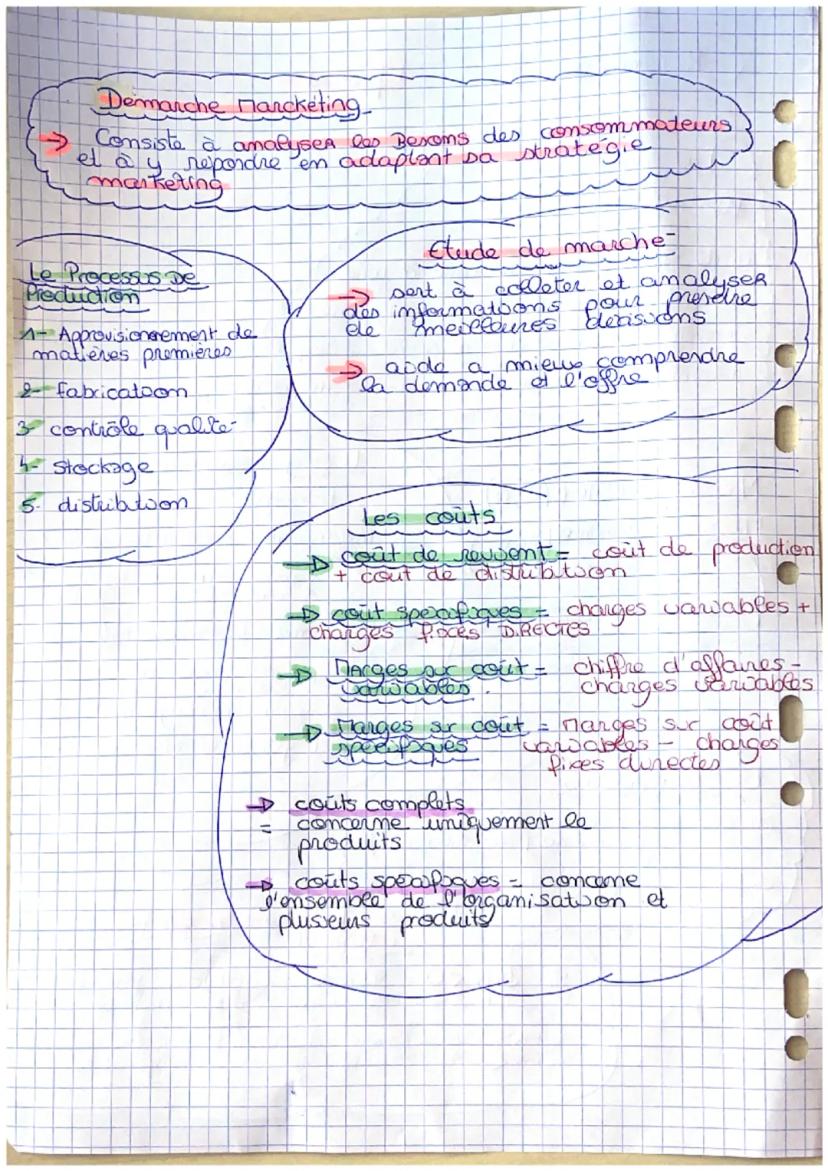 Demarche Marckéting
→ Consiste à analyser les Besoins des consommateurs
et à y répondre en adaptant sa stratégie
marketing
Etude de marché
→ sert à colleter et analyser
des informations pour prendre
de meilleures décisions
→ aide a mieux comprendre
la demande et l'offre
Le Processus De
Production
1- Approvisionnement de
matières premières
2- fabrication
3- contrôle qualité
4- Stockage
5- distribution
Les coûts
→ coût de revient = coût de production
+ cout de distribution
→ coût spécifiques = charges variables +
charges fixes DIRECTES
→ Marges sur coût = chiffre d'affaires -
variables. charges variables
→ Marges sr coût = Marges sur coût
spécifiques variables - charges
fixes directes
→ coûts complets
= concerne uniquement le
produits
→ coûts spécifiques = concerne
l'ensemble de l'organisation et
plusieurs produits